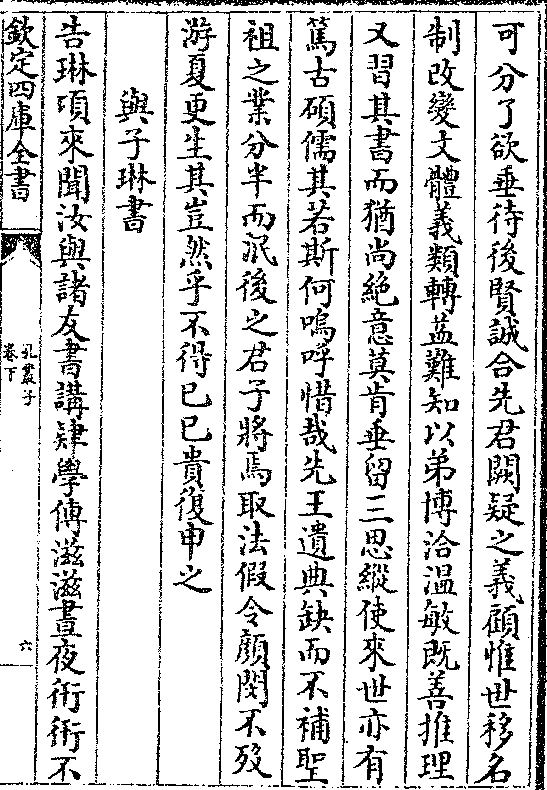 可分了欲垂待後賢誠合先君闕疑之義顧惟世移名
制改變文體義類轉益難知以弟博洽温敏既善推理
又習其書而猶尚絶意莫肯垂留三思縱使來世亦有
篤古碩儒其若斯何嗚呼惜哉先王遺典缺而不補聖
祖之業分半而泯後之君子將焉取法假令顔閔不歿
游夏更生其豈然乎不得已已貴復申之
與子琳書
告琳頃來聞汝與諸友書講肄學傳滋滋晝夜衎衎不
欽定四庫全書
孔叢子
卷下
六